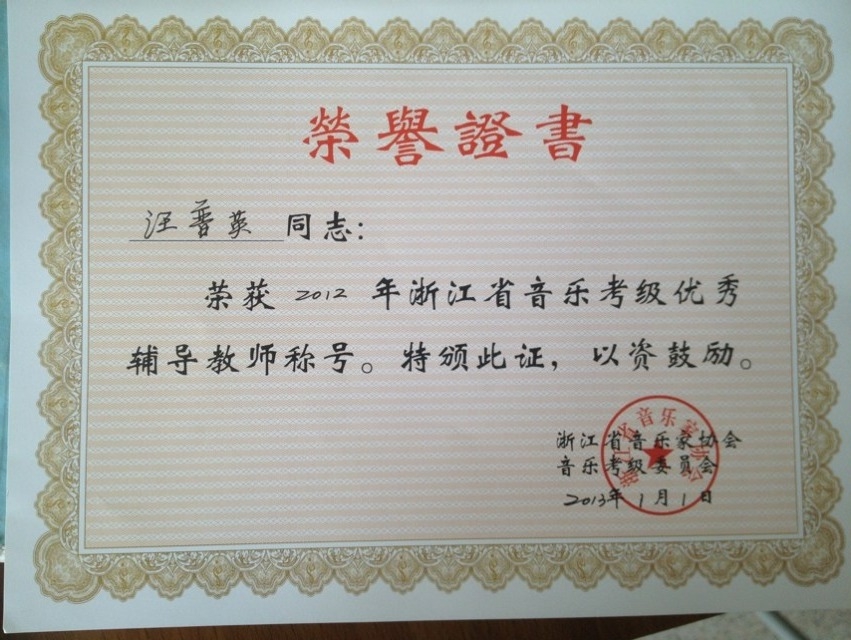 榮譽證書
汪普英 同志：
荣获 2012 年浙江省音乐考级优秀
辅导教师称号。特颁此证，以资鼓励。
浙江省音乐家协会
音乐考级委员会
2013年1月1日
浙江省音乐家协会